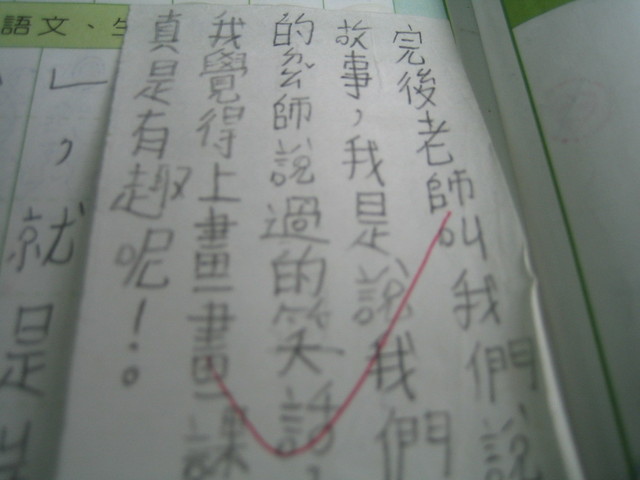 完後老師叫我們說
故事，我是說我們
的師說過的笑話，
我覺得上畫畫課
真是有趣呢！。
」，就是
語文、